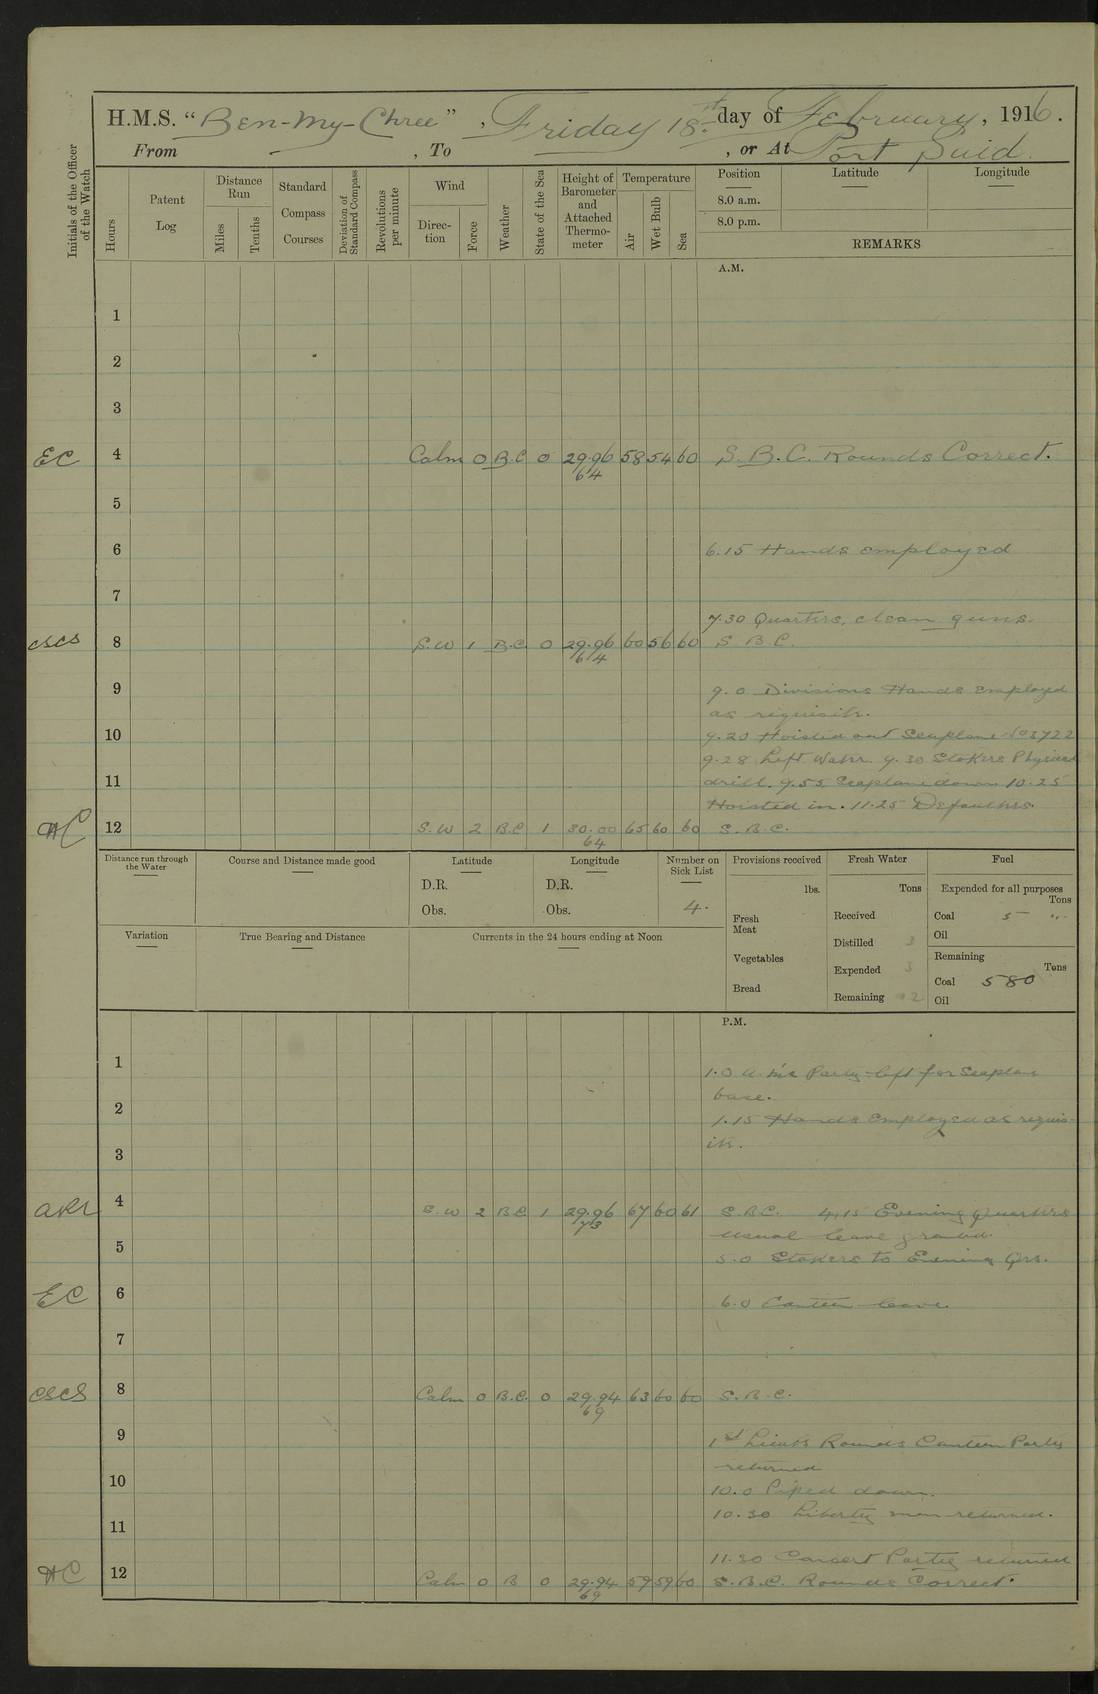 H.M.S. "Ben-My-Chree", Friday 18st day of February, 1916.
From - , To , or At Port Said.
Initials of the Officer of the Watch
Hours
Patent Log
Distance Run
Miles
Tenths
Standard Compass Courses
Deviation of Standard Compass
Revolutions per minute
Wind
Direction
Force
Weather
State of the Sea
Height of Barometer and Attached Thermometer
Temperature
Air
Wet Bulb
Sea
Position Latitude Longitude
8.0 a.m.
8.0 p.m.
REMARKS
A.M.
1
2
3
EC 4 Calm 0 B.C 0 29.96 58 54 60 S.B.C. Rounds Correct.
64
5
6 6.15 Hands employed
7
7.30 Quarters, clean guns.
CSCS 8 S.W 1 B.C. 0 29.96 60 56 60 S B.C.
64
9 9.0 Divisions Hands employed
as requisite.
10 9.20 Hoisted out Seaplane No 3722
9.28 Left Water. 9.30 Stokers Physical
11 drill. 9.55 Seaplane down 10.25
Hoisted in. 11.25 Defaulters.
HC 12 S.W 2 B.C 1 30.00 65 60 60 S.B.C.
64
Distance run through the Water
Course and Distance made good
Latitude
D.R.
Obs.
Longitude
D.R.
Obs.
Number on Sick List
4.
Provisions received
lbs.
Fresh Meat
Vegetables
Bread
Fresh Water
Tons
Received
Distilled 3
Expended 3
Remaining 2
Fuel
Expended for all purposes
Tons
Coal 5
Oil
Remaining
Tons
Coal 580
Oil
Variation
True Bearing and Distance
Currents in the 24 hours ending at Noon
P.M.
1 1.0 Party left for Seaplane
base.
2 1.15 Hands Employed as requis-
ite.
3
4 S.W 2 B.C. 1 29.96 67 60 61 S.B.C. 4.15 Evening Quarters
73 usual leave granted.
5 5.0 Stokers to Evening Qrs.
EC 6 6.0 Canteen leave.
7
CSCS 8 Calm 0 B.C. 0 29.94 63 60 60 S.B.C.
69
9 1st Lieuts Rounds Canteen Party
returned
10 10.0 Piped down.
10.30 Liberty men returned.
11
11.30 Concert Party returned
HC 12 Calm 0 B 0 29.94 59 59 60 S.B.C. Rounds Correct.
69